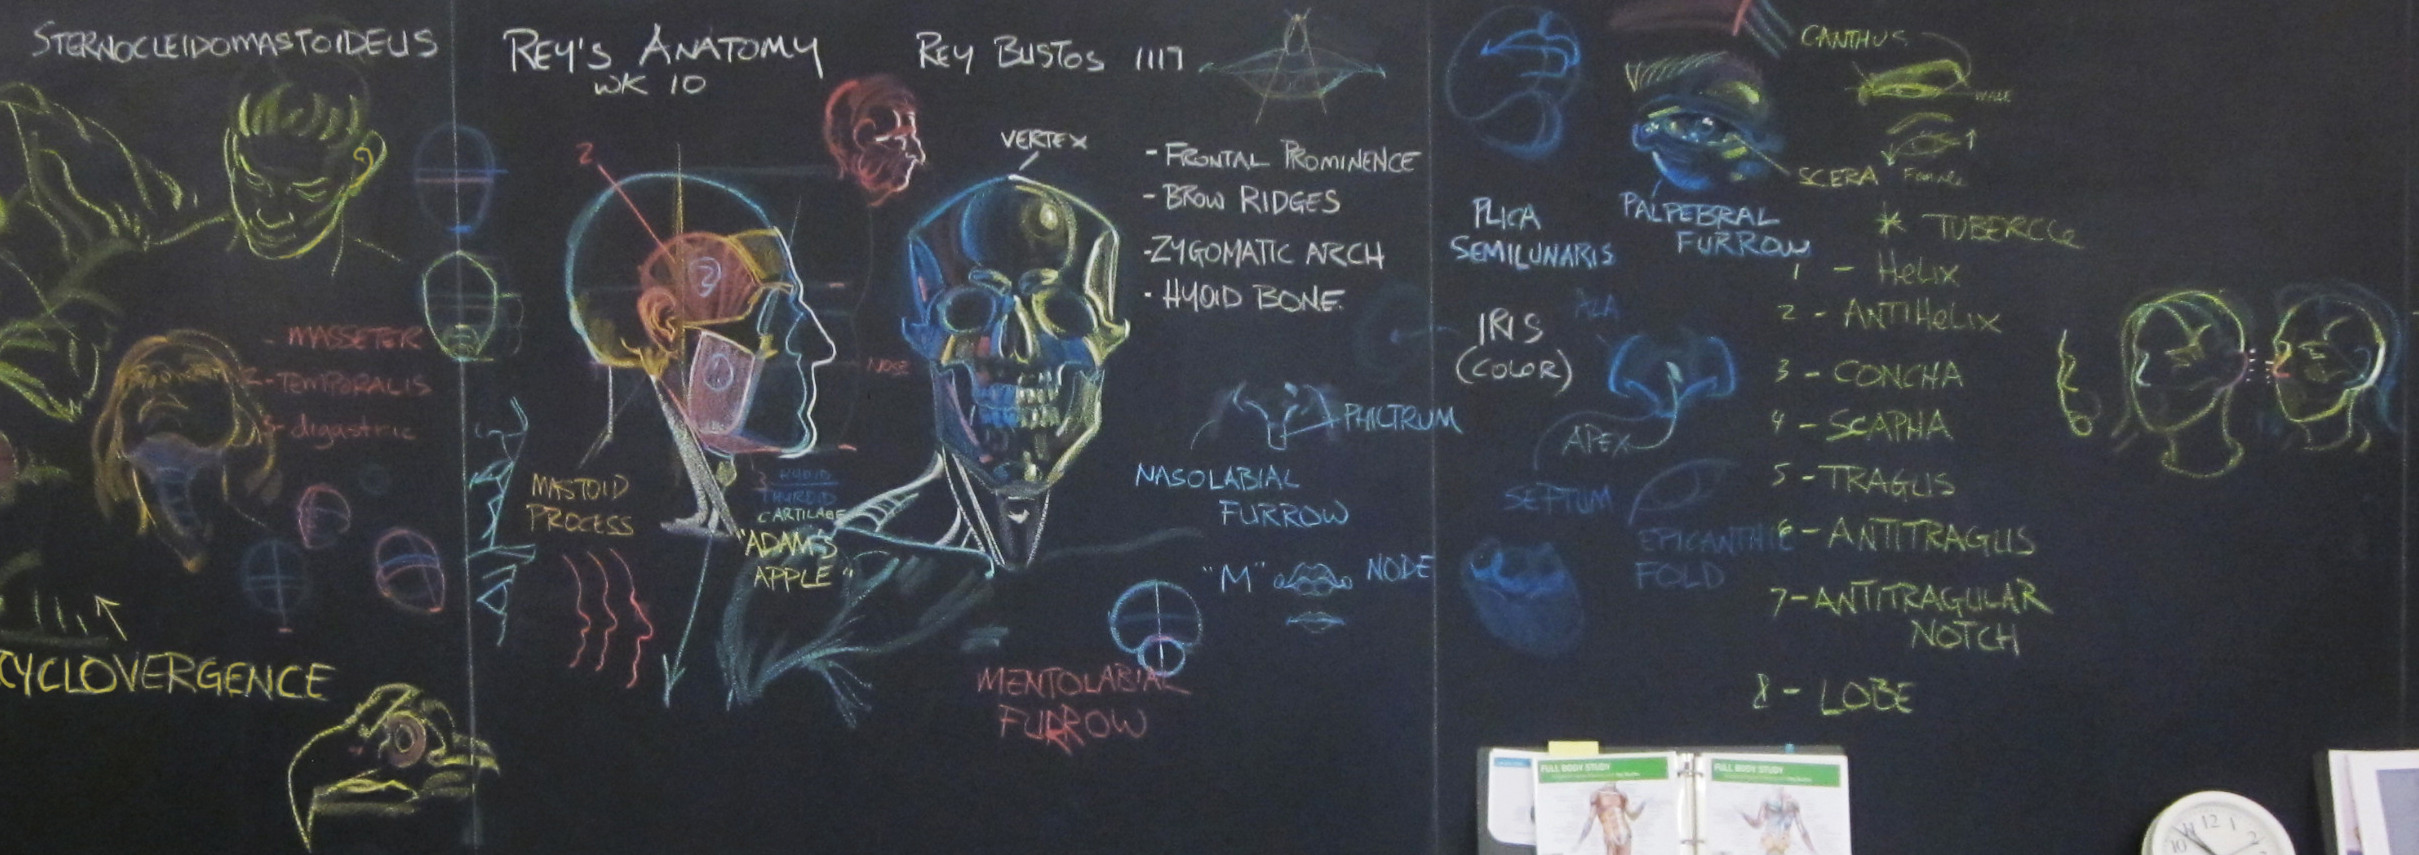 STERNOCLEIDOMASTOIDEUS
- MASSETER
2-TEMPORALIS
3-digastric
CYCLOVERGENCE
REY'S ANATOMY
WK 10
REY BUSTOS 1117
2
2
1
NOSE
MASTOID
PROCESS
3 HYOID
THYROID
CARTILAGE
"ADAM'S
APPLE"
VERTEX
- FRONTAL PROMINENCE
- BROW RIDGES
-ZYGOMATIC ARCH
- HYOID BONE.
PHILTRUM
NASOLABIAL
FURROW
"M" NODE
MENTOLABIAL
FURROW
PLICA
SEMILUNARIS
IRIS
(COLOR)
CANTHUS
SCERA
PALPEBRAL
FURROW
ALA
APEX
SEPTUM
EPICANTHIC
FOLD
* TUBERCLE
1 - HeLIX
2 - ANTIHeLIX
3 - CONCHA
4 - SCAPHA
5 - TRAGUS
6 - ANTITRAGUS
7-ANTITRAGULAR
NOTCH
8 - LOBE
FULL BODY STUDY
FULL BODY STUDY
10 11 12 1 2